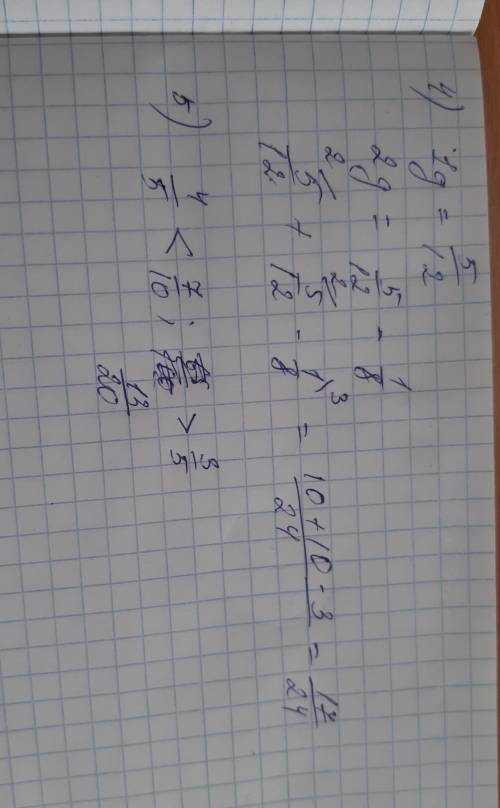 4) 1д = 5/12
2д = 5/12 - 1/8
5/12 \2 + 5/12 \2 - 1/8 \3 = 10+10-3/24 = 17/24
5) 4/5 > 7/10 ; 13/20 > 3/5